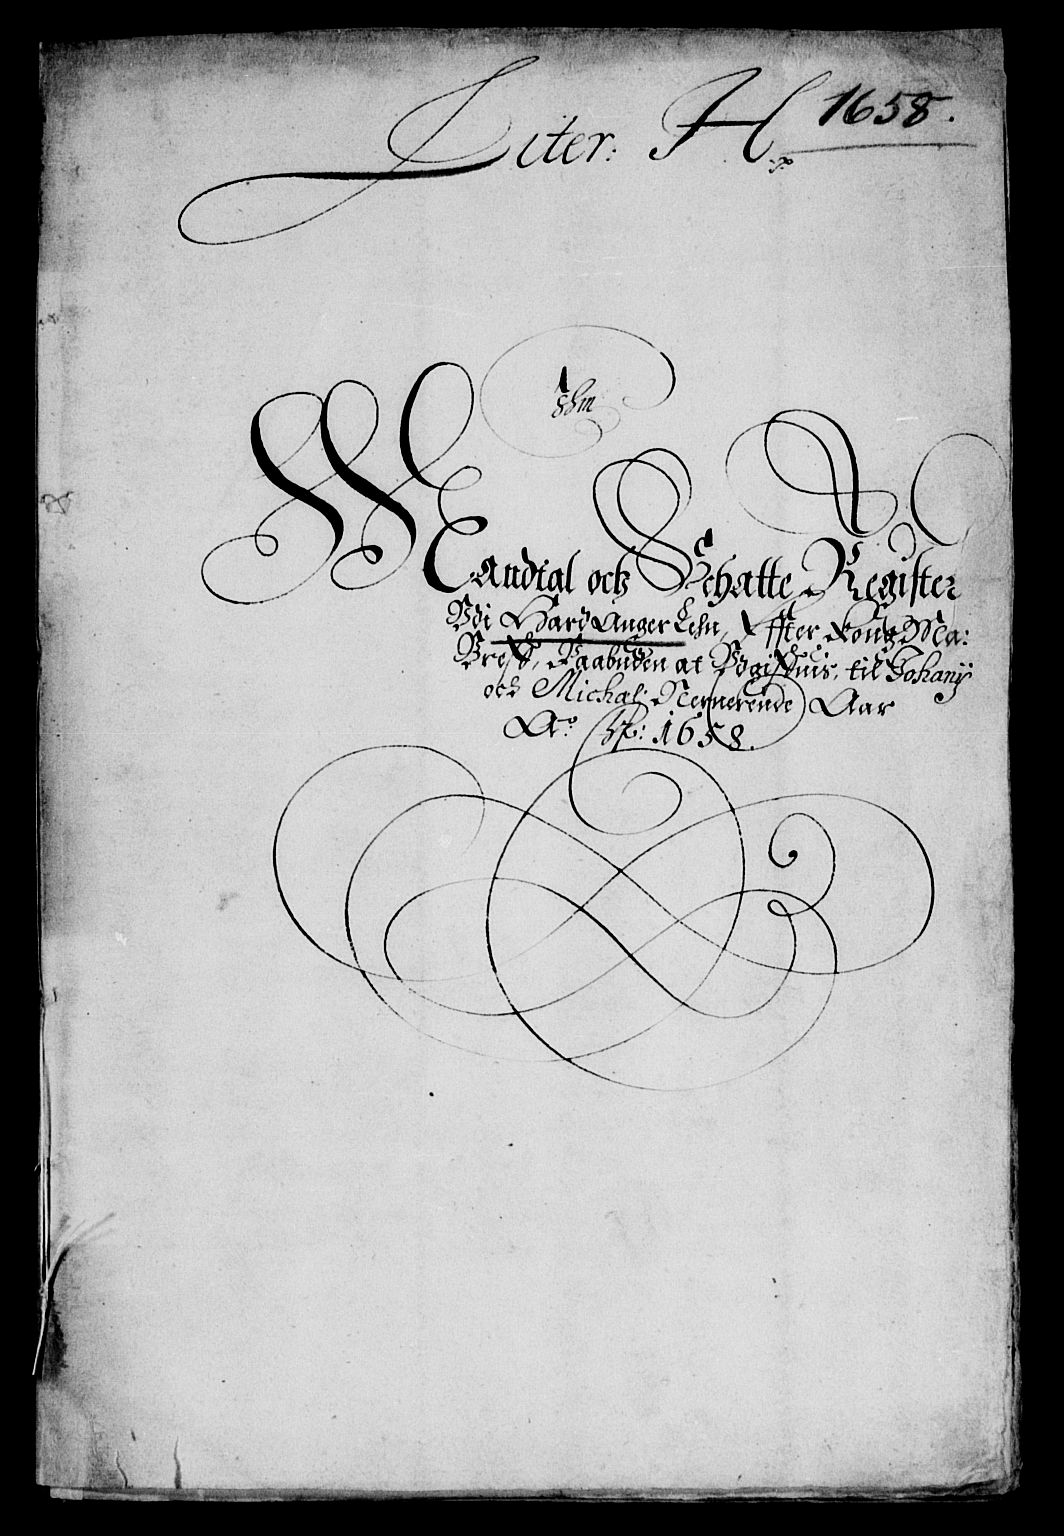 Liter: H. 1658.
Mandtal och Schatte Register
Vdi HardAnger Lehn, Effter Kong: Ma:
Breff, Paabuden at Vdgiffuis, til Johanÿ
och Michal: Nerverende Aar
Ao: 1658.